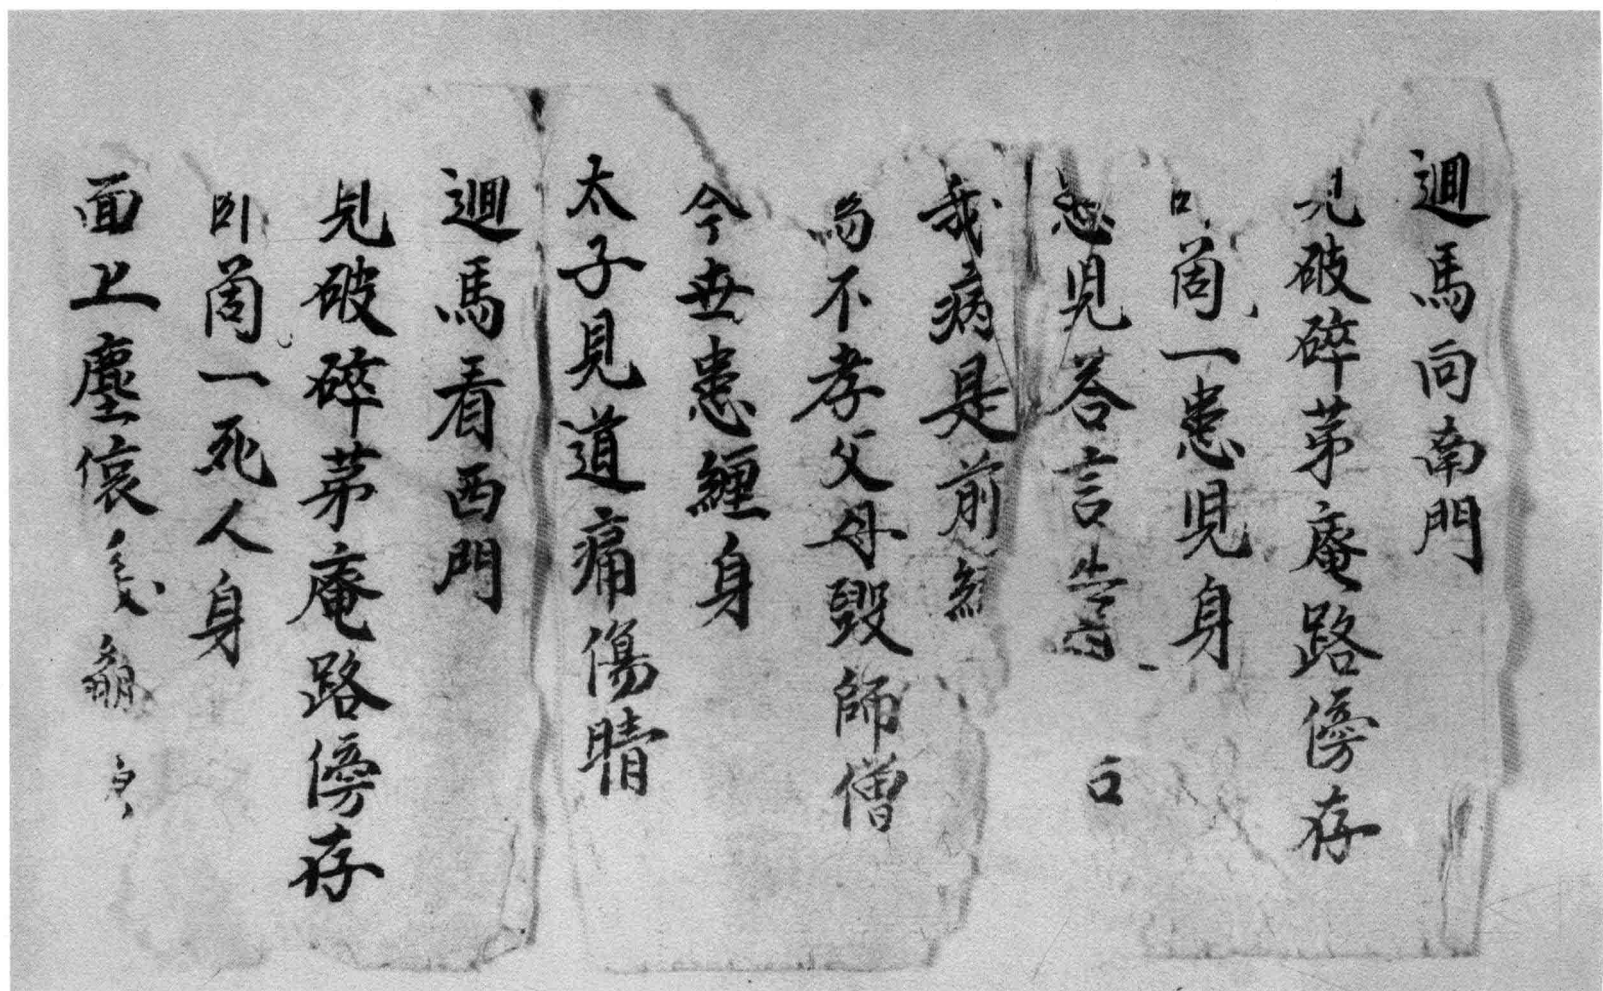 迴馬向南門
見破碎茅庵路傍存
臥箇一患兒身
患兒答言告
我病是前緣
為不孝父母毀師僧
今世患纏身
太子見道痛傷睛
迴馬看西門
見破碎茅庵路傍存
臥箇一死人身
面上塵